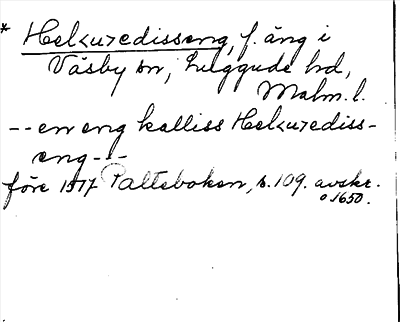 * Helkuredisseng, f. äng i
Väsby sn, Luggude hd,
Malm. l.
-- en eng kalliss Helkurediss-
eng --
före 1517 Palteboken, s. 109. avskr.
o 1650.